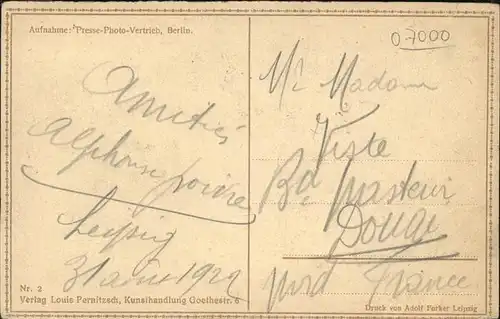 Aufnahme: Presse-Photo-Vertrieb, Berlin.
0-7000
Amitiés
Alphonse
Leipzig
31 août 1922
Mr Madame
Viste
Bd Pasteur
Douai
Nord France
Nr. 2
Verlag Louis Pernitzsch, Kunsthandlung Goethestr. 6
Druck von Adolf Forker Leipzig